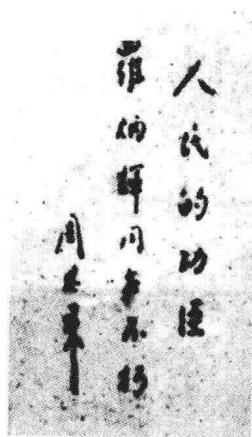 人民的功臣
罗炳辉同志不朽
周恩来